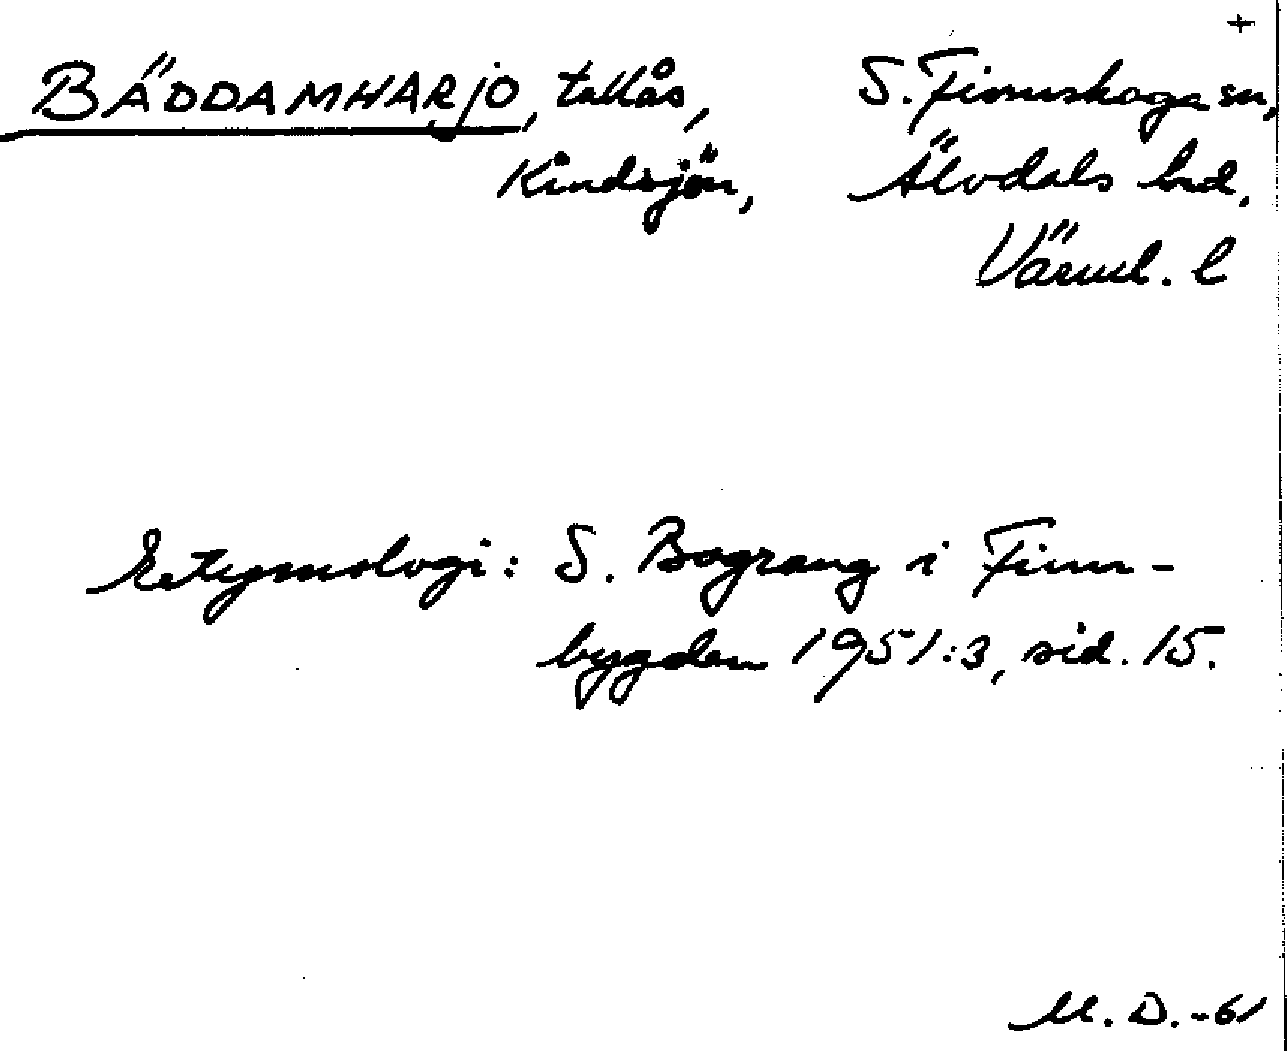 +
BÄDDAMHARJO, tallås, S. Finnskoga sn,
Kindsjön, Älvdals hd,
Värml. l
Etymologi: S. Bograng i Finn-
bygden 1951:3, sid. 15.
M. D. -61